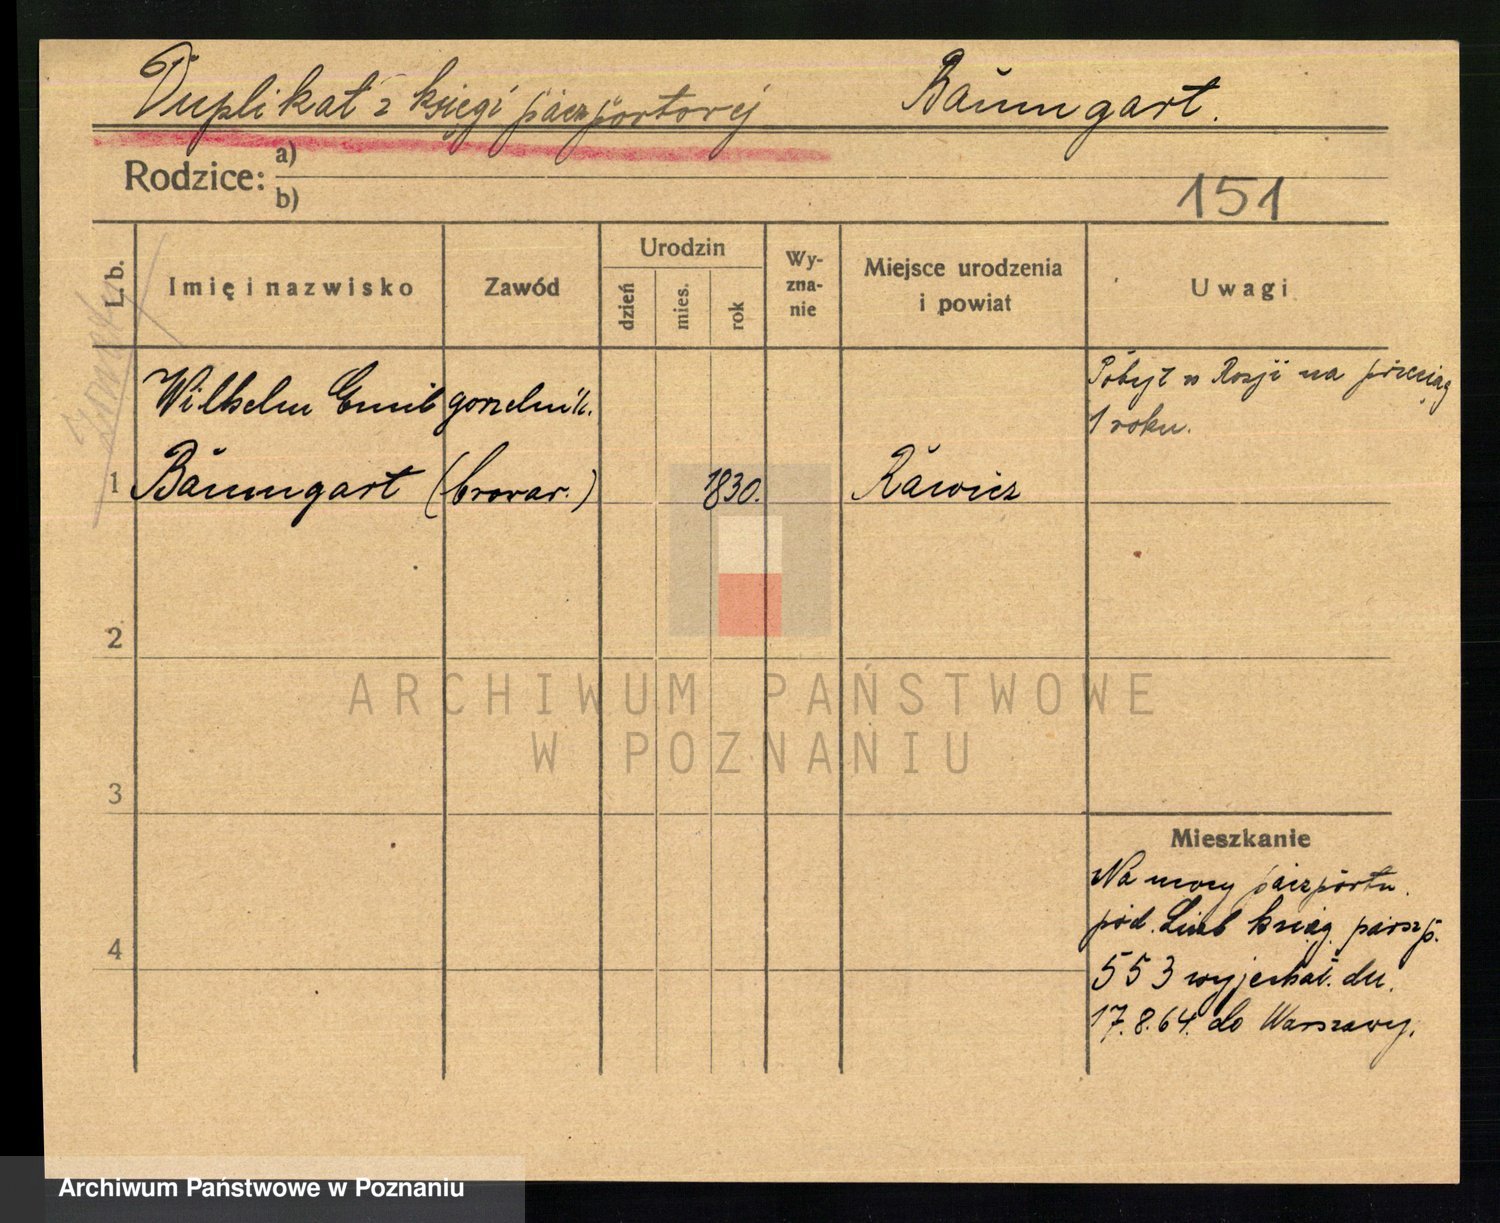 Duplikat z księgi paszportowej Baumgart.
Rodzice: a)
b)
151
L. b.
Imię i nazwisko
Zawód
Urodzin
dzień
mies.
rok
Wy-
zna-
nie
Miejsce urodzenia
i powiat
Uwagi
Wilhelm Emil gorzelnik.
Pobyt w Rosji na przeciąg
1 roku.
1 Baumgart (browar.) 1830. Rawicz
2
ARCHIWUM PAŃSTWOWE
W POZNANIU
3
Mieszkanie
Na mocy paszportu.
pod. Liczb ksiąg paszp.
4
553 wyjechał. dn.
17.8.64. do Warszawy.
Archiwum Państwowe w Poznaniu